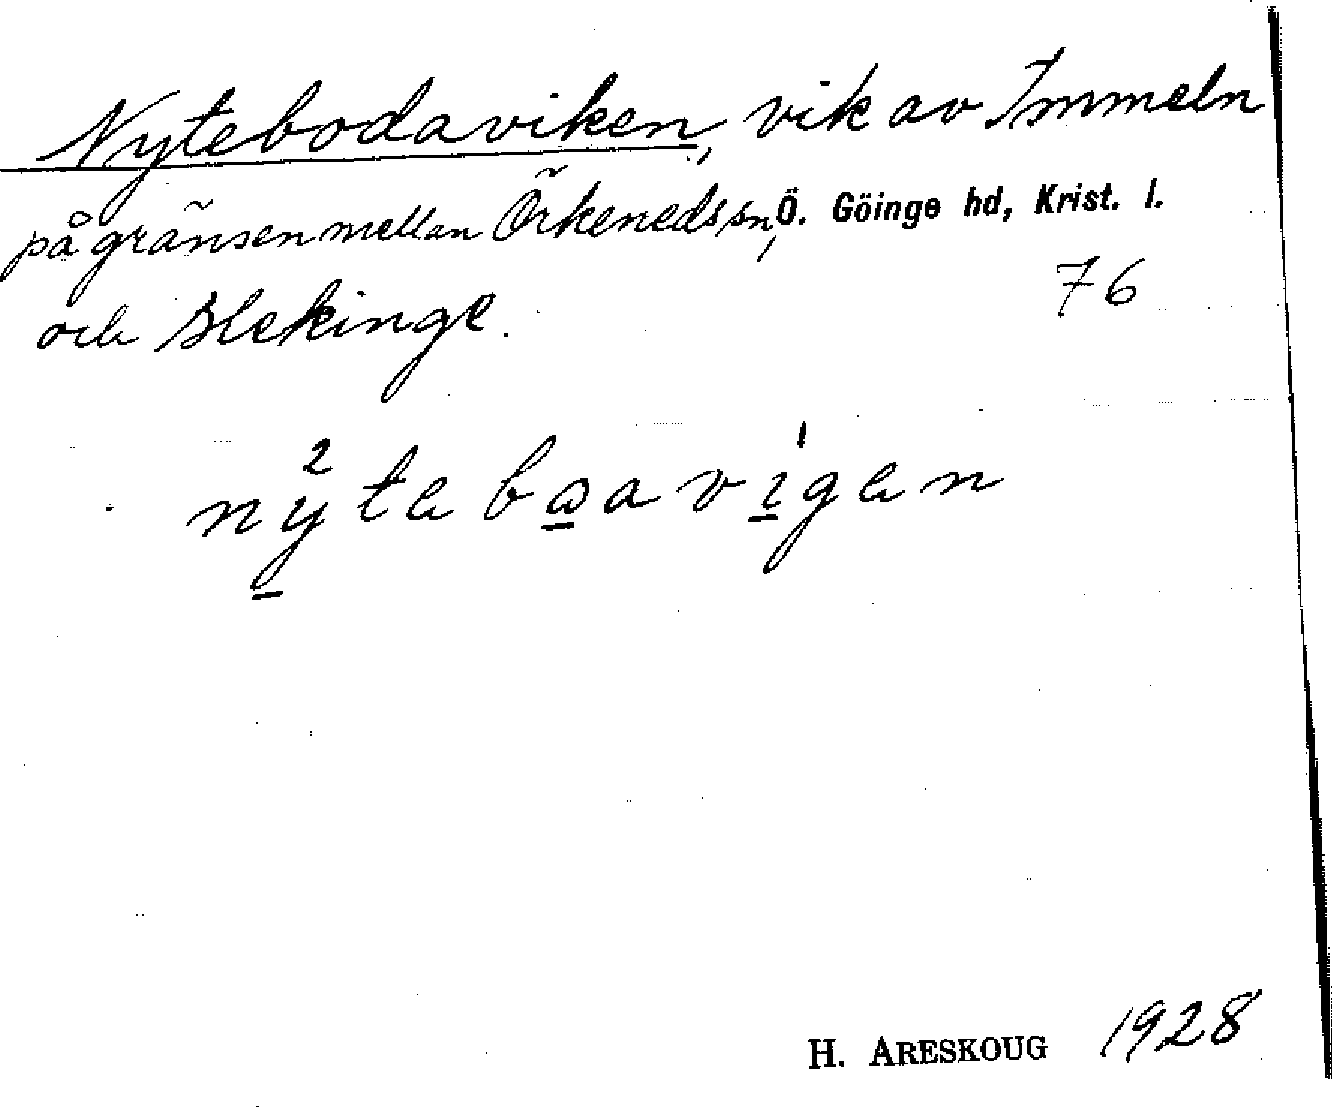 Nytebodaviken, vik av Immeln
på gränsen mellan Örkeneds sn, Ö. Göinge hd, Krist. l.
76
och Blekinge.
2 1
nytebɷavigen
H. ARESKOUG 1928